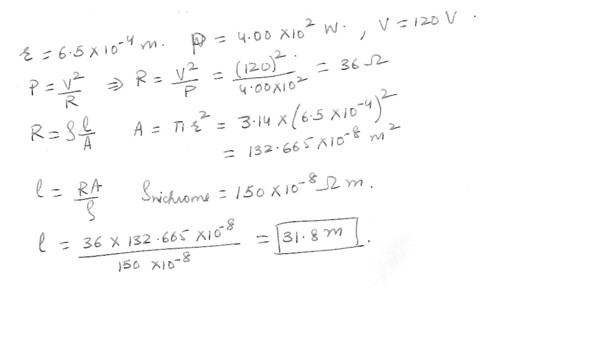 r = 6.5 × 10⁻⁴ m. P = 4.00 × 10² W. , V = 120 V .
P = V²/R ⇒ R = V²/P = (120)²/4.00×10² = 36 Ω
R = ρ l/A A = π r² = 3.14 × (6.5 × 10⁻⁴)²
= 132.665 × 10⁻⁸ m²
l = RA/ρ ρnichrome = 150 × 10⁻⁸ Ω m.
l = 36 × 132.665 × 10⁻⁸/150 × 10⁻⁸ = 31.8 m .